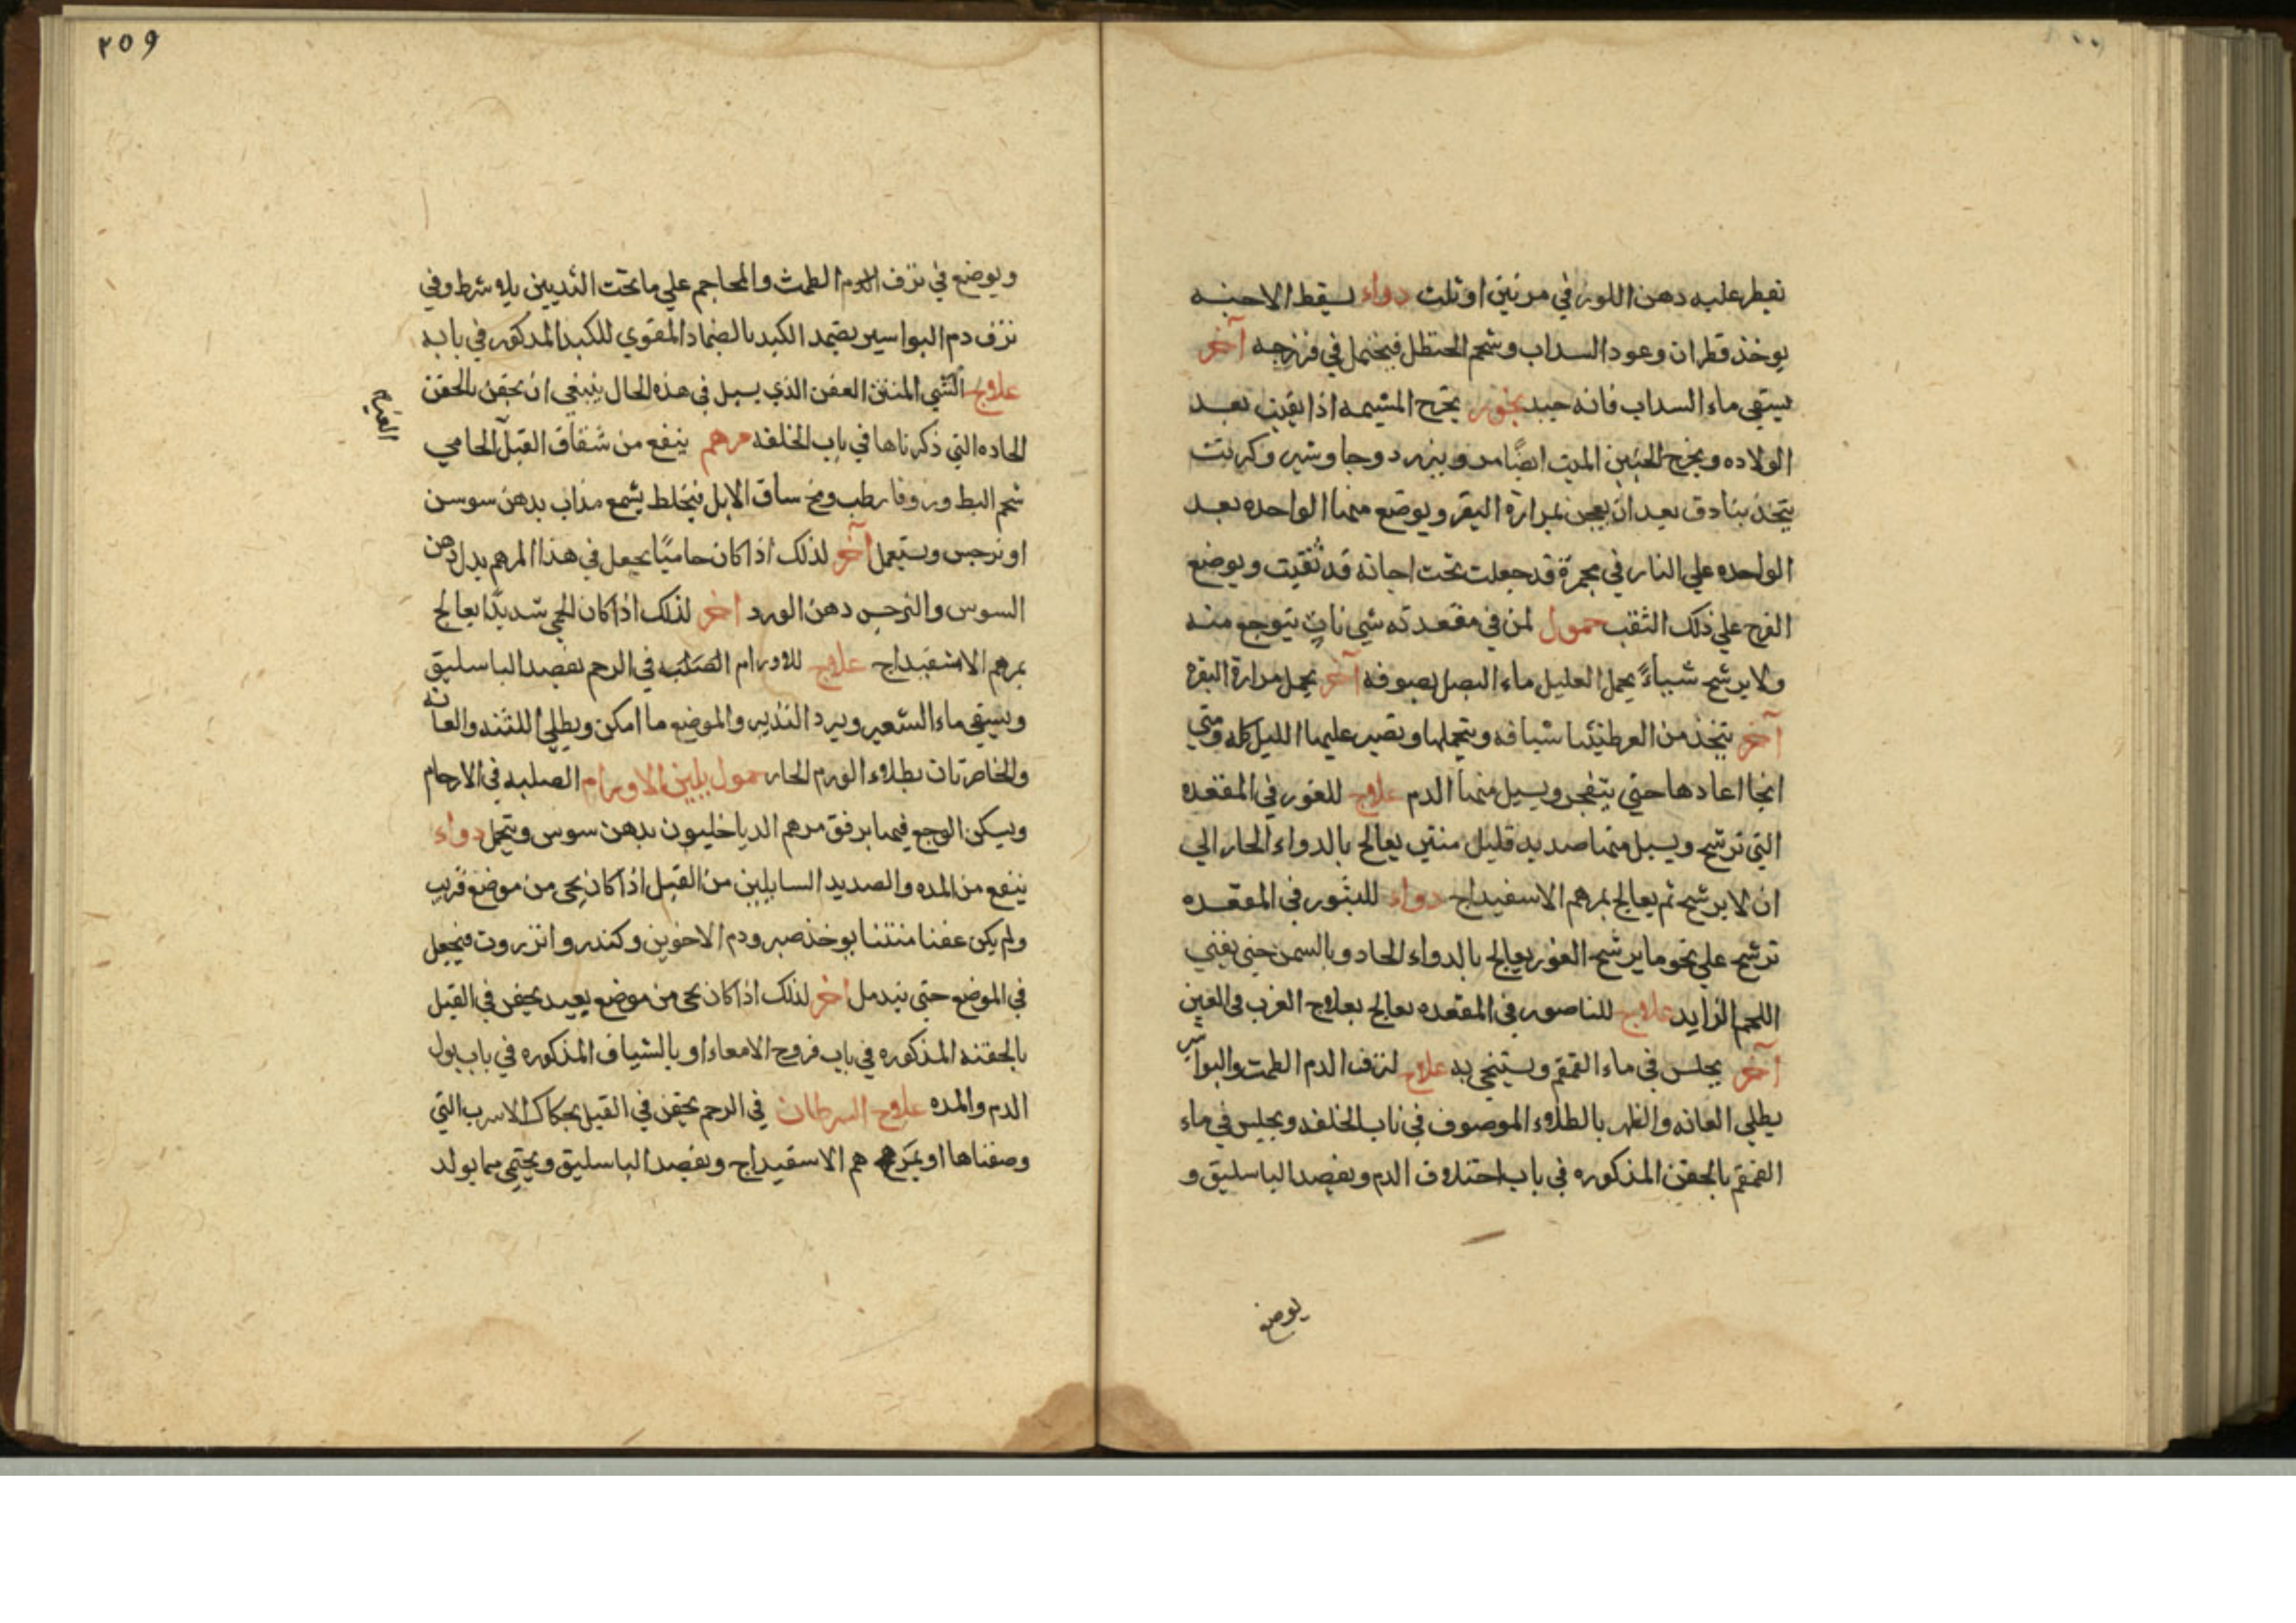 نقطر عليه دهن اللوز في مرتين او ثلث دواء يسقط الاجنه
يوخذ قطران وعود السداب وشحم الحنظل فيحتمل في فرزجه آخر
يستقي ماء السداب فانه جيد بخور يخرج المشيمه اذا بقيت بعد
الولاده ويخرج الجنين الميت ايضًا مر وبيزرد وجاوشير وكربت
يتخذ بنادق بعد ان يعجن بمرارة البقر ويوضع منها الواحده بعد
الواحده علي النار في مجمرة قد جعلت تحت اجانة قد ثقبت ويوضع
الفرج علي ذلك الثقب حمول لمن في مقعدته شي ناتٍ يتوجع منه
ولا يرشح شياءً يحمل العليل ماء البصل بصوفه آخر يحمل مرارة البقره
آخر يتخذ من العرطنيثا شيافه ويتحملها ويصبر عليها الليل كله ومتي
انجا اعادها حتي يتفجر ويسيل منها الدم علاج للغور في المقعده
التي ترشح ويسيل منها صديد قليل منتن يعالج بالدواء الحار الي
ان لا يرشح ثم يعالج بمرهم الاسفيداج دواء للبثور في المقعده
ترشح علي نحو ما يرشح الغور يعالج بالدواء الحاد وبالسمن حتي يفني
اللحم الزايد علاج للناصور في المقعده يعالج بعلاج الغرب في العين
آخر يجلس في ماء القمقم ويستنجي به علاج لنزف الدم الطمث والبواسير
يطلي العانه والظهر بالطلاء الموصوف في باب الخلفه ويجلس في ماء
القمقم بالحقن المذكوره في باب اختلاف الدم ويفصد الباسليق و
يوضع
٢٥٩
ويوضع في نزف الدم الطمث والمحاجم علي ما تحت الثديين بلا شرط وفي
نزف دم البواسير يضمد الكبد بالضماد المقوي للكبد المدكور في بابه
علاج الشي المنتن العفن الذي يسيل في هذه الحال ينبغي ان يحقن بالحقن
الحاده التي ذكرناها في باب الخلفه مرهم ينفع من شقاق القبل الحامي
شحم البط وزوفا رطب ومخ ساق الابل فيخلط بشمع مذاب بدهن سوسن
او نرجس ويستعمل آخر لذلك اذا كان حاميًا يجعل في هذا المرهم بدل دهن
السوس والنرجس دهن الورد اخر لذلك اذا كان الحمي شديدًا يعالج
بمرهم الاسفيداج علاج للاورام الصلبه في الرحم يفصد الباسليق
ويسقي ماء الشعير ويبرد التدبير والموضع ما امكن ويطلي اللثنه والعانه
والخاصرتان بطلاء الورم الحار حمول يلين الاورام الصلبه في الارحام
ويسكن الوجع فيها برفق مرهم الدياخليون بدهن سوس ويتحمل دواء
ينفع من المده والصديد السايلين من القبل اذا كان يجي من موضع قريب
ولم يكن عفنا منتنا يوخذ صبر ودم الاخوين وكندر وانزروت فيجعل
في الموضع حتي يندمل اخر لذلك اذا كان يجي من موضع بعيد يحقن في القبل
بالحقنه المذكوره في باب قروح الامعاء او بالشياف المذكوره في باب بول
الدم والمده علاج السرطان في الرحم يحقن في القبل بحكاك الاسرب التي
وصفناها او بمرهم الاسفيداج ويفصد الباسليق ويحتمي مما يولد